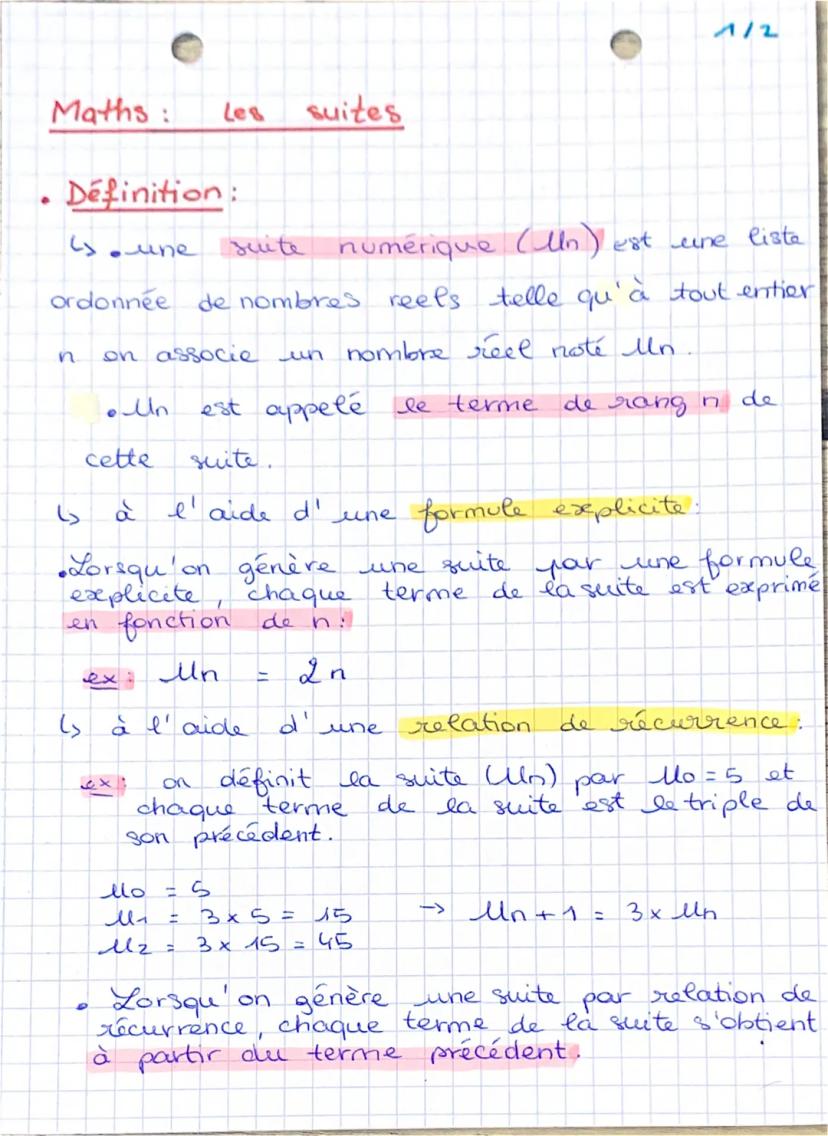 1/2
Maths : Les suites
• Définition :
↳ • une suite numérique (Un) est une liste
ordonnée de nombres reels telle qu'à tout entier
n on associe un nombre réel noté Un.
• Un est appelé le terme de rang n de
cette suite.
↳ à l'aide d'une formule explicite :
• Lorsqu'on génère une suite par une formule
explicite, chaque terme de la suite est exprimé
en fonction de n :
ex : Un = 2n
↳ à l'aide d'une relation de récurrence :
ex : on définit la suite (Un) par U0 = 5 et
chaque terme de la suite est le triple de
son précédent.
U0 = 5
U1 = 3 x 5 = 15 → Un + 1 = 3 x Un
U2 = 3 x 15 = 45
• Lorsqu'on génère une suite par relation de
récurrence, chaque terme de la suite s'obtient
à partir du terme précédent.